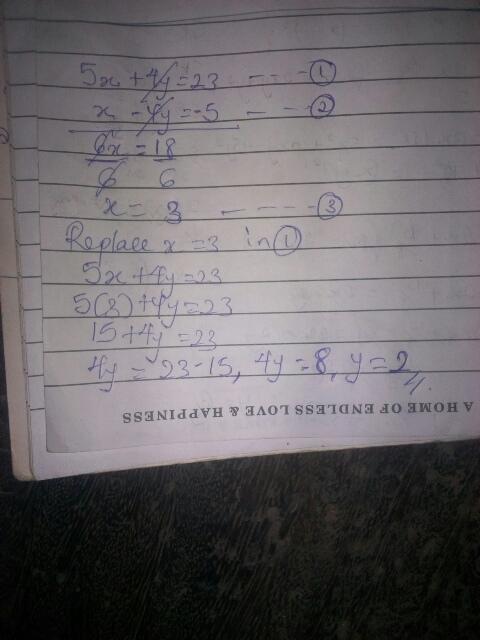 5x + 4y = 23 - - - ①
x - 4y = -5 - - - ②
6x = 18
6 6
x = 3 - - - - ③
Replace x = 3 in ①
5x + 4y = 23
5(3) + 4y = 23
15 + 4y = 23
4y = 23 - 15, 4y = 8, y = 2//.
A HOME OF ENDLESS LOVE & HAPPINESS